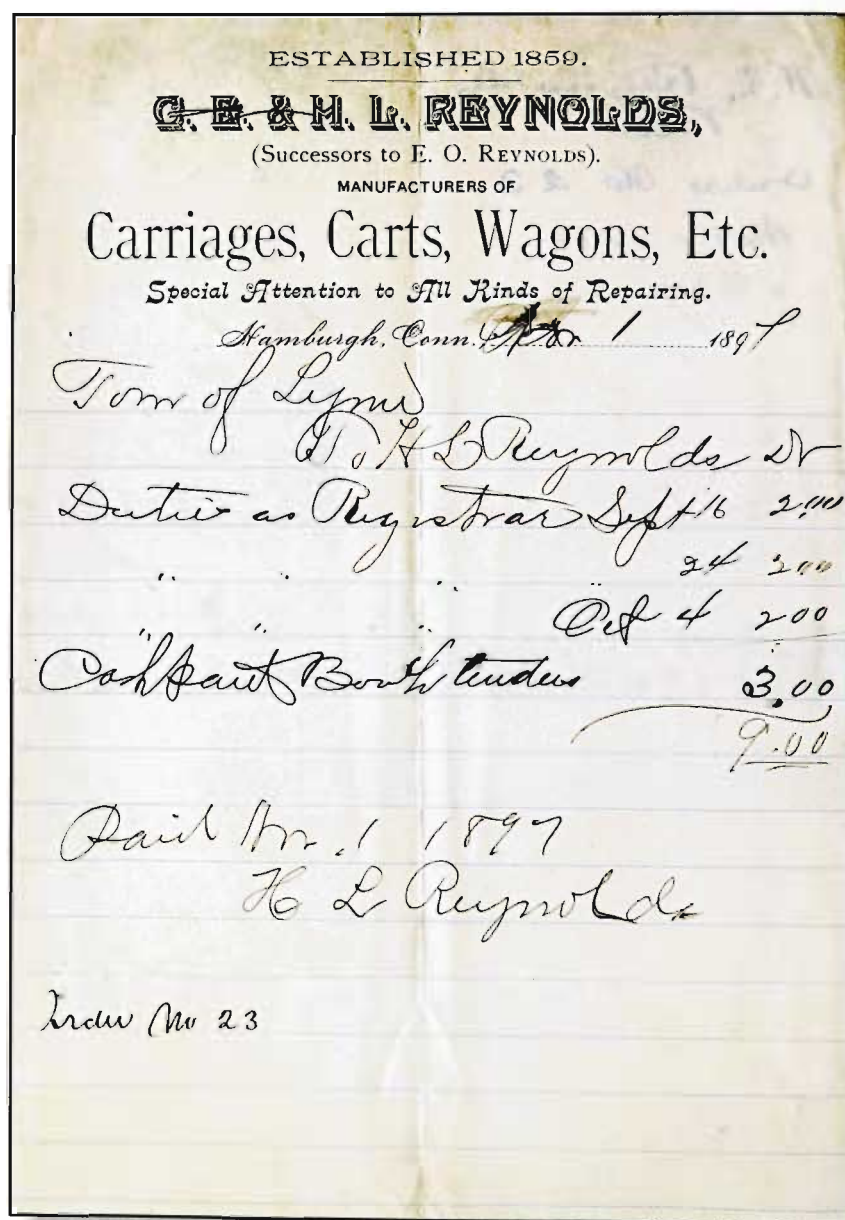 ESTABLISHED 1859.
G. E. & H. L. REYNOLDS,
(Successors to E. O. REYNOLDS).
MANUFACTURERS OF
Carriages, Carts, Wagons, Etc.
Special Attention to All Kinds of Repairing.
Hamburgh, Conn. Nov 1 1897
Town of Lyme
To H L Reynolds Dr
Duties as Registrar Sept 16 2.00
" " " 24 2.00
" " " Oct 4 2 00
Cash paid Booth tenders 3.00
9.00
Paid Nov. 1 1897
H L Reynolds
Order No 23